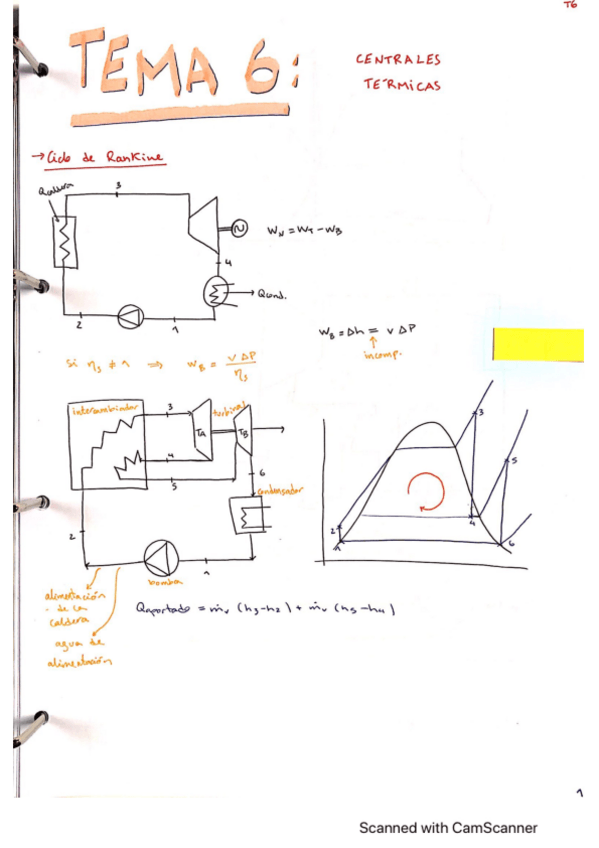 T6
TEMA 6:
CENTRALES
TÉRMICAS
→ Ciclo de Rankine
Qcaldera
3
W_N = W_T - W_B
4
Qcond.
2
1
W_B = Δh = v ΔP
↑
incomp.
Si η_s ≠ 1 ⇒ W_B = v ΔP / η_s
intercambiador
turbinas
3
TA
TB
4
5
6
condensador
2
1
bomba
3
5
2
1
4
6
alimentación
de la
caldera
agua de
alimentación
Qaportado = ṁv (h3-h2) + ṁv (h5-h4)
1
Scanned with CamScanner